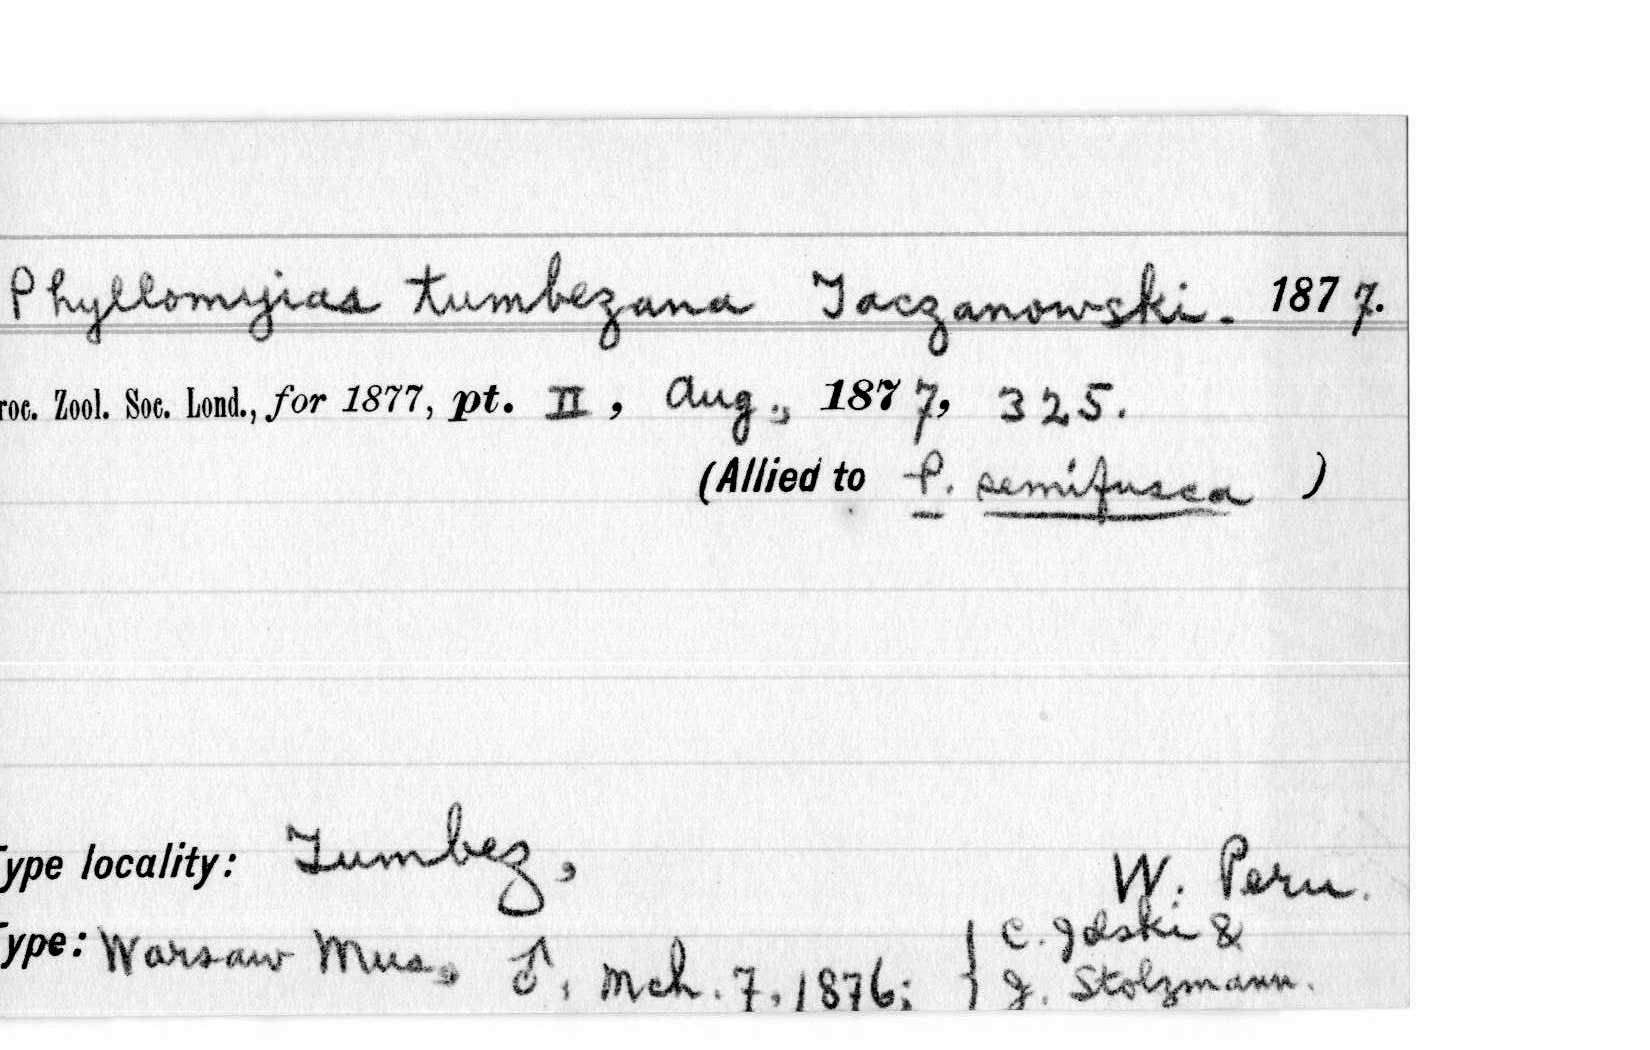 Phyllomyias tumbezana Taczanowski. 1877.
roc. Zool. Soc. Lond., for 1877, pt. II, Aug., 1877, 325.
(Allied to P. semifusca )
Type locality: Tumbez, W. Peru.
Type: Warsaw Mus., ♂, Mch. 7, 1876; { C. Jelski &
J. Stolzmann.